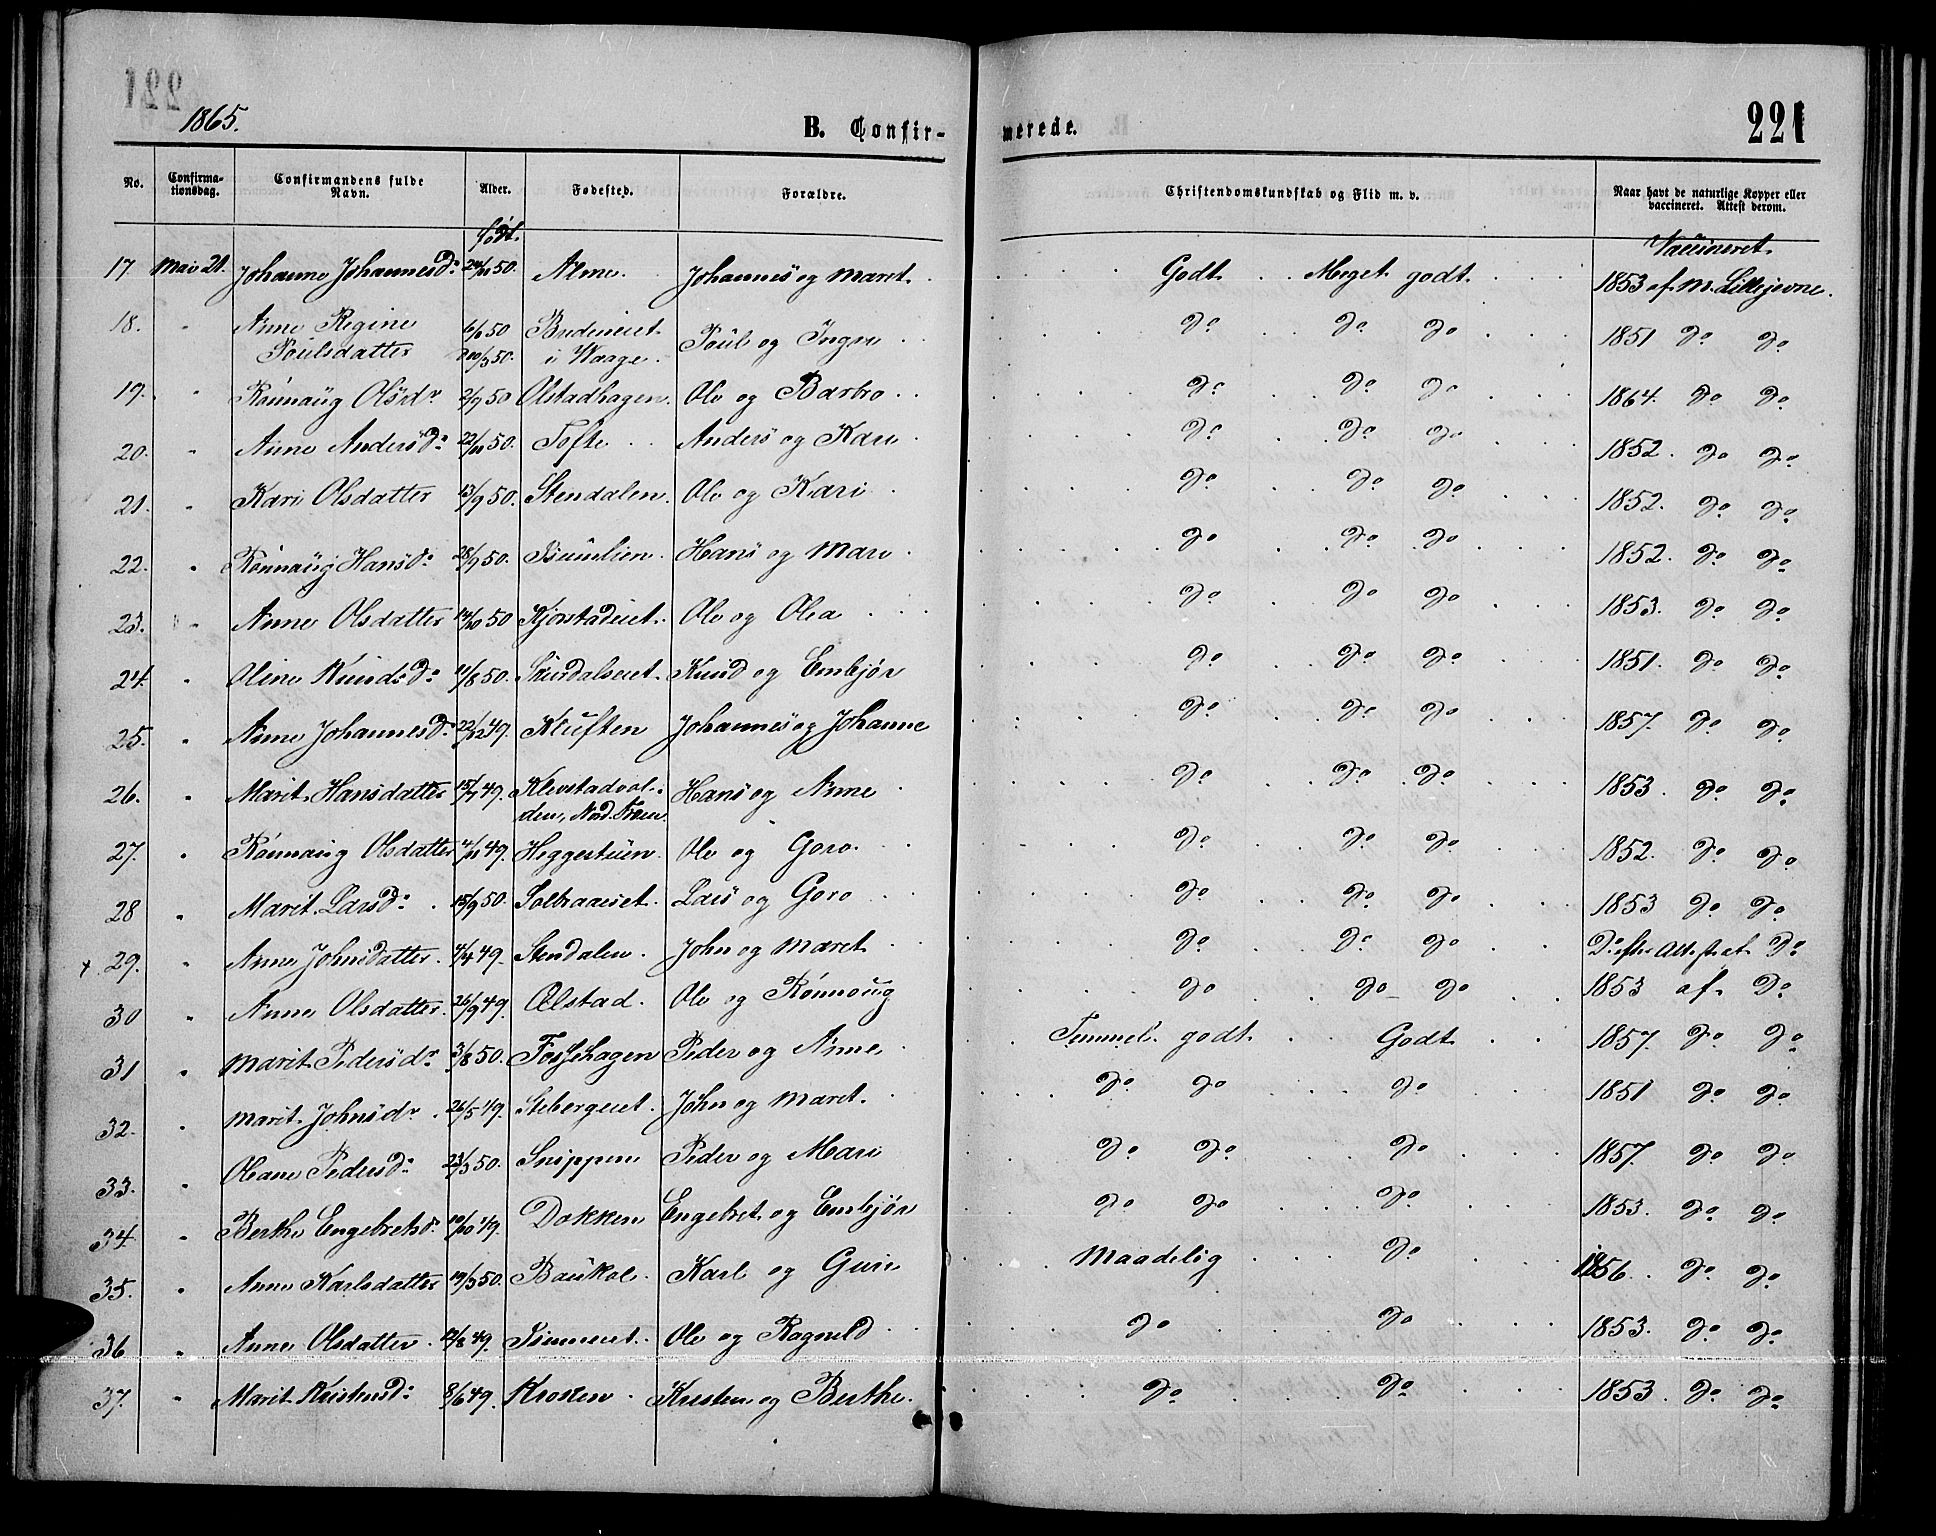 1865.
B. Confir-
merede.
221
No. Confirma-tionsdag. Confirmandens fulde Navn. Alder. Fødested. Forældre. Christendomskundskab og Flid m. v. Naar havt de naturlige Kopper eller vaccineret. Attest derom.
født. Vaccineret
17 Mai 21. Johanne Johannesd: 50. Alme Johannes og Maret Godt Meget godt 1853 af M. Lillejevne.
18. " Anne Regine Poulsdatter 50 Bredeneiet i Waage. Poul og Ingen do do do 1851 do do
19. " Rønnaug Olsdr 2/9 50 Olstadhagen. Ole og Barbro do do do 1864. do do
20. " Anne Andersd: 50. Tofte Anders og Kari do do do 1852. do do
21. " Kari Olsdatter 13/9 50. Stendalen. Ole og Kari do do do 1852. do do
22. " Rønnaug Hansd: 28/9 50. Hans og Mari do do do 1852. do do
23. " Anne Olsdatter 14/10 50 Kjørstadeiet. Ole og Olea do do do 1853. do do
24. " Oline Knudsd: 11/8 50. Knud og Embjør do do do 1851. do do
25. " Anne Johannesd: 22/12 49. Kluften Johannes og Johanne do do do 1857. do do
26. " Marit Hansdatter 49. Klevstadvol-den, Nord.Fron Hans og Anne do do do 1853. do do
27. " Rønnaug Olsdatter 49. Heggestuen. Ole og Goro. do do do 1852. do do
28 " Marit Larsd: 15/9 50. Solbraaeiet. Lars og Goro do do do 1853 do do
+ 29. " Anne Johnsdatter. 4/4 49. Stendalen. John og Maret do do do Do efter Attest af Do
30 " Anne Olsdatter. 26/9 49. Ølstad. Ole og Rønnoug do do do 1853 af Do
31 " Marit Pedersdr 3/8 50. Fossehagen Peder og Anne. Temmel. godt Godt 1857. do do
32. " Marit Johnsdr. 26/5 49. Stebergeiet. John og Maret. do do do 1851 do do
33. " Oleane Pedersd: 23/3 50. Snippen Peder og Mari do do do 1857. do do
34. " Berthe Engebretsdr 10/10 49. Dokken Engebret og Embjør do do do 1853. do do
35. " Anne Karlsdatter 19/3 50. Baukol. Karl og Guri Maadelig do 1856. do do
36 " Anne Olsdatter. 49. Ole og Ragnild do do 1853. do do
37. " Marit Kristensd: 8/6 49. Kroken Kristen og Berthe. do do 1853. do do